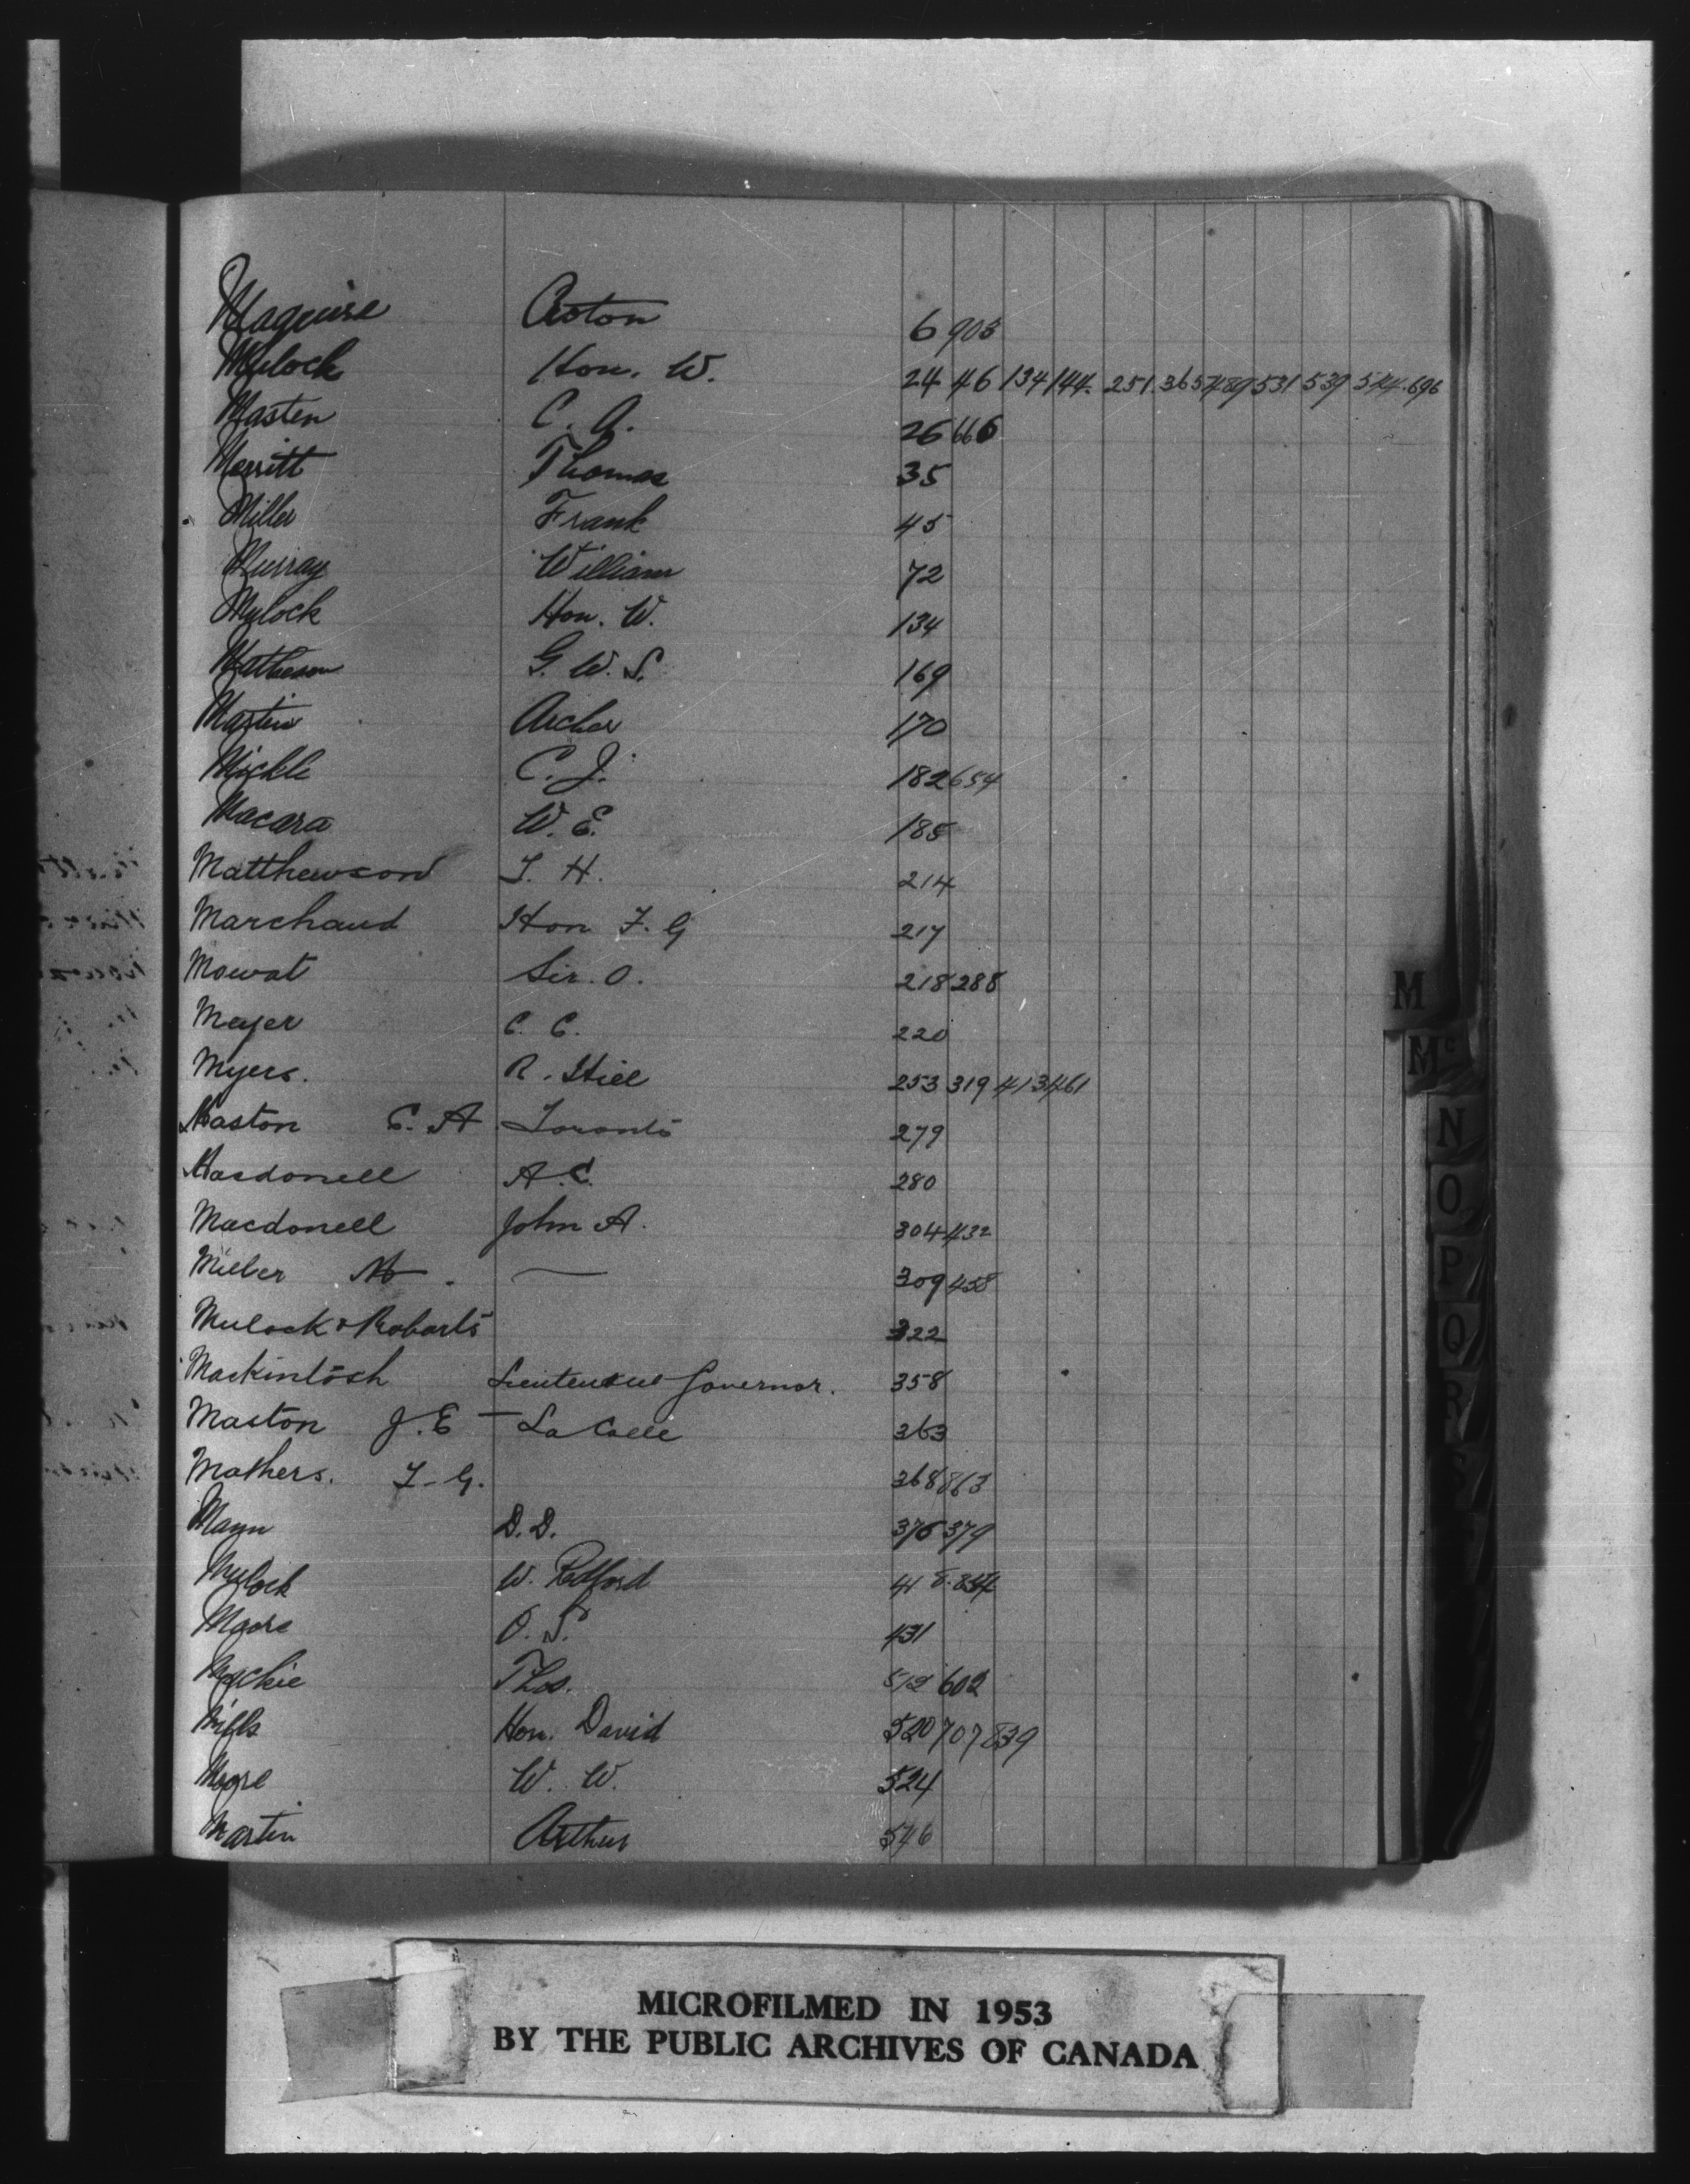 Maguire Croton 6 903
Mulock Hon. W. 24 46 134 144. 251. 365 489 531 539 544. 696
Masten C. A. 26 666
Merritt Thomas 35
Miller Frank 45
Murray William 72
Mulock Hon. W. 134
Matheson G. W. S. 169
Martin Archer 170
Mickle C. J. 182 654
Macara W. E. 185
Matthewson J. H. 214
Marchand Hon F. G 217
Mowat Sir. O. 218 288
Meyer C. C. 220
Myers. R. Hill 253 319 413 461
Maston C. A Toronto 279
Macdonell A. C. 280
Macdonell John A. 304 432
309 458
Mulock & Robarts 322
Mackintosh Lieutenant Governor. 358
Maston J. E — La Calle 363
Mathers. T. G. 368 863
Mann D. D. 376 379
Mulock W. Redford 418. 854
Moore O. S. 431
Mackie Thos. 512 602
Mills Hon. David 520 707 839
Moore W. W. 524
Martin Arthur 546
M
Mc
N
O
P
Q
R
S
MICROFILMED IN 1953
BY THE PUBLIC ARCHIVES OF CANADA